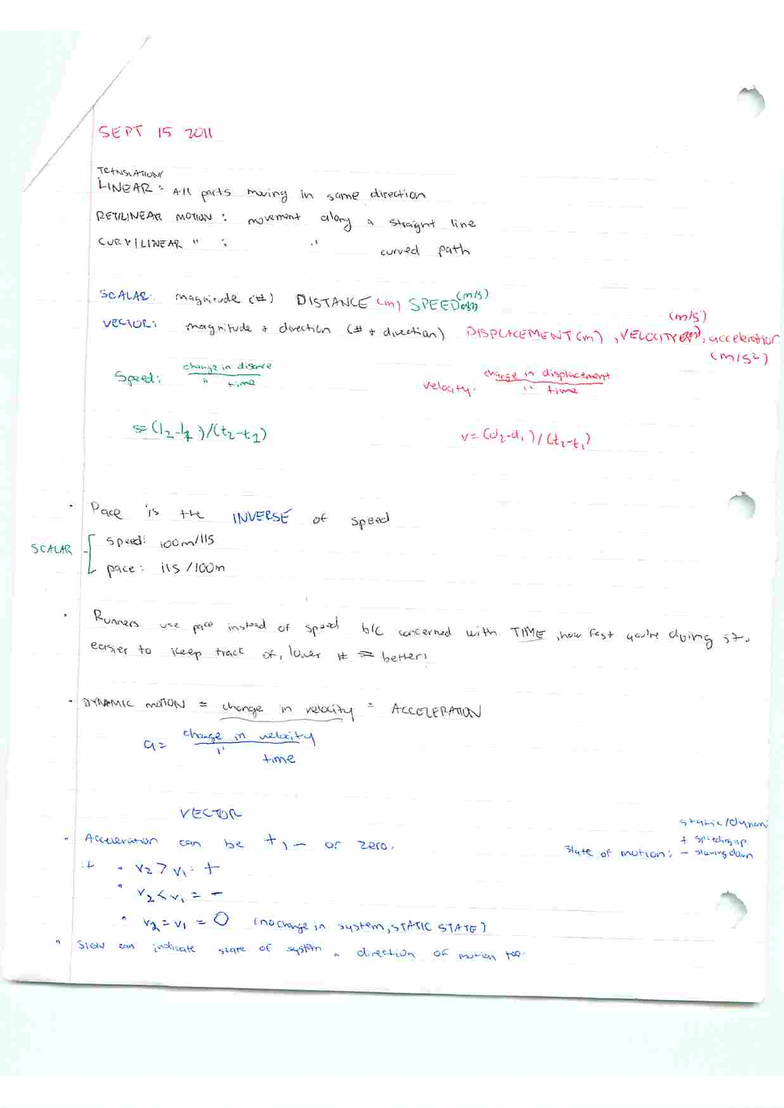 SEPT 15 2011
TRANSLATION/
LINEAR: All parts moving in same direction
RETILINEAR MOTION: movement along a straight line
CURVILINEAR " : " curved path
SCALAR: magnitude (#) DISTANCE (m) SPEED (m/s)
(m/s)
VECTOR: magnitude + direction (# + direction) DISPLACEMENT (m), VELOCITY, acceleration
(m/s²)
Speed: change in distance / " time
velocity: change in displacement / " time
s=(l2-l1)/(t2-t1)
v=(d2-d1)/(t2-t1)
• Pace is the INVERSE of speed
SCALAR
speed: 100m/11s
pace: 11s/100m
• Runners use pace instead of speed b/c concerned with TIME, how fast you're doing st.
easier to keep track of, lower # = better!
• DYNAMIC MOTION = change in velocity = ACCELERATION
a = change in velocity / " time
VECTOR
• Acceleration can be +, - or zero.
static/dynami
+ speeding up
state of motion: - slowing down
• v2 > v1 = +
" v2 < v1 = -
" v2 = v1 = 0 (no change in system, STATIC STATE)
" SIGN can indicate state of system + direction of motion too.